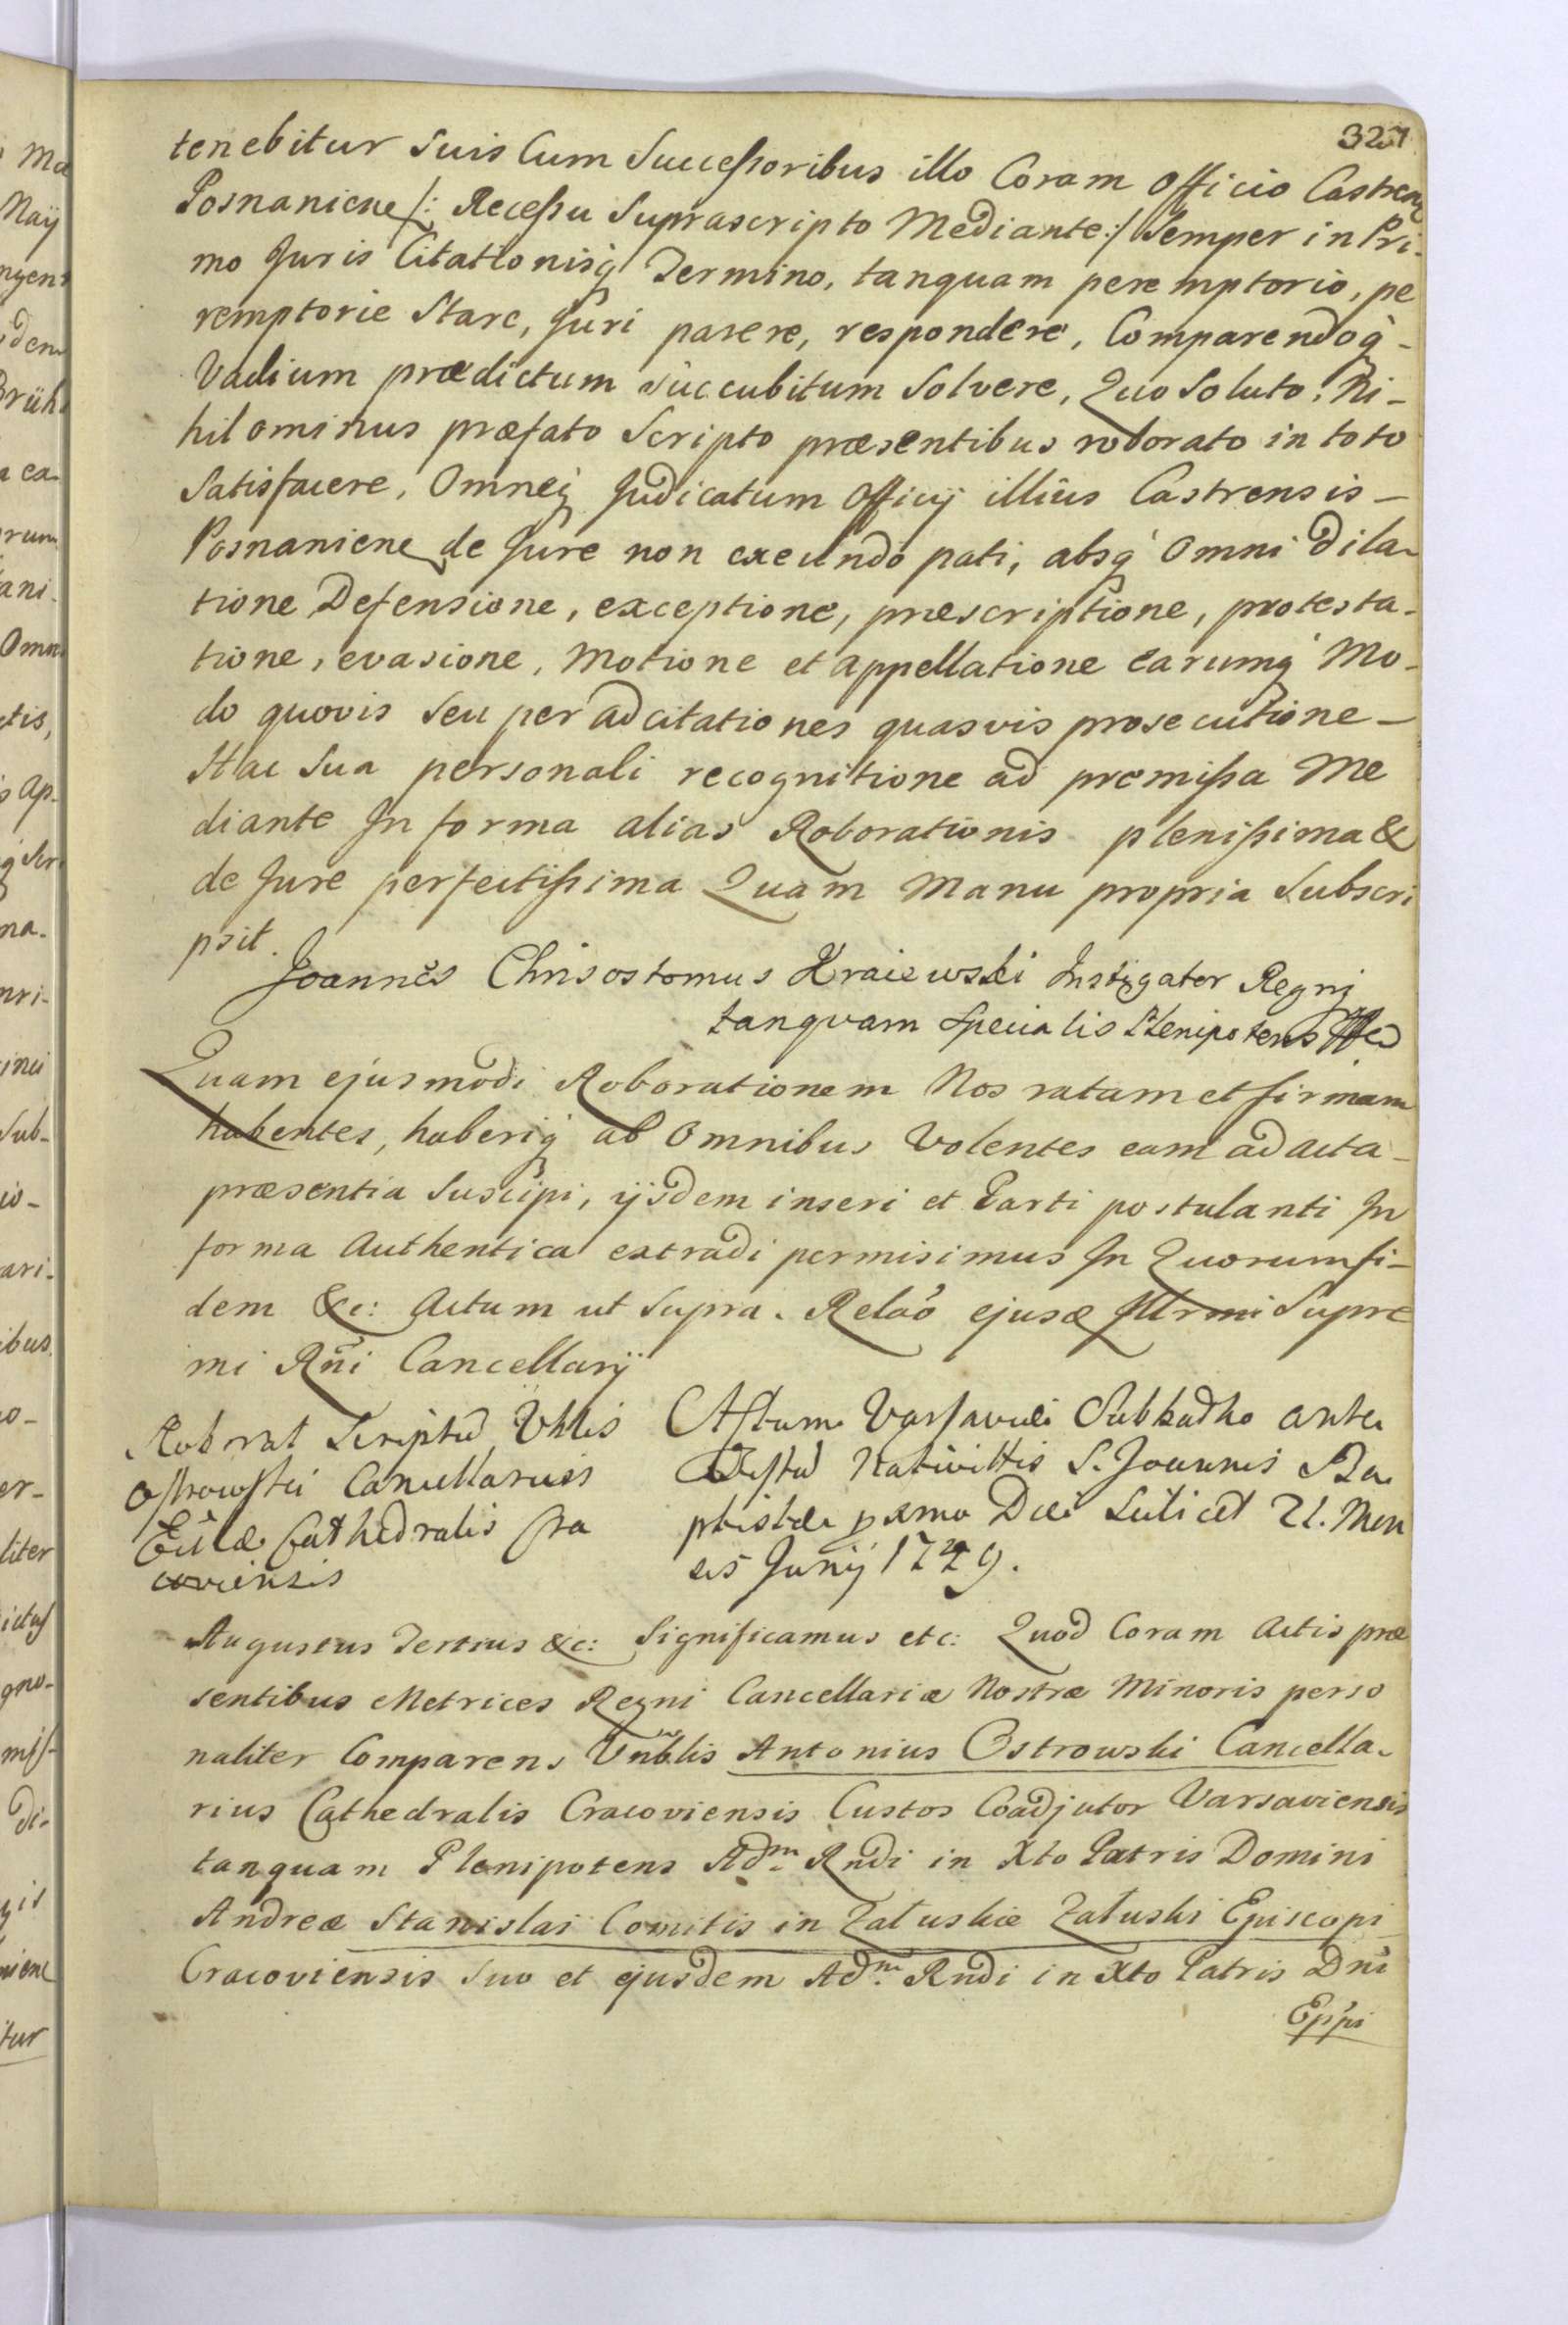 327
tenebitur Suis Cum Successoribus illo Coram Officio Castren
Posnaniene /: Recessu Suprascripto Mediante :/ Semper in Pri-
mo Juris Citationisq Termino, tanquam peremptorio, pe
remptorie Stare, Juri parere, respondere, Comparendoq -
Vadium prædictum succubitum Solvere, Quo Soluto, Ni-
hilominus præfato Scripto præsentibus roborato in toto
Satisfacere, Omneq Judicatum Officij illius Castrensis -
Posnaniene de Jure non exeundo pati, absq Omni dila-
tione Defensione, exceptione, præscriptione, protesta-
tione, evasione, Motione et appellatione earumq Mo-
do quovis Seu per adcitationes quasvis prosecutione -
Hac Sua personali recognitione ad premissa Me
diante In forma alias Roborationis plenissima &
de Jure perfectissima Quam Manu propria Subscri
psit.
Joannes Chrisostomus Kraiewski Instigator Regnij
tanqvam Specialis Plenipotens
Quam ejusmodi Roborationem Nos ratam et firmam
habentes, haberiq ab Omnibus Volentes eam ad acta -
præsentia Suscipi, ijsdem inseri et Parti postulanti In
forma Authentica extradi permisimus In Quorum fi-
dem &c: Actum ut Supra. Relao ejusd Illrmi Supre
mi Rni Cancellarij
Roborat Scriptu Vblis
Ostrowski Cancellarius
Ecclæ Cathedralis Cra
coviensis
Actum Varsaviæ Sabbatho ante
Festu Nativittis S. Joannis Ba
ptistæ pxmo Die Scilicet 21. Men
sis Junij 1749.
Augustus Tertius &c: Significamus etc: Quod Coram Actis præ
sentibus Metrices Regni Cancellariæ Nostræ Minoris perso
naliter Comparens Vnblis Antonius Ostrowski Cancella-
rius Cathedralis Cracoviensis Custos Coadjutor Varsaviensis
tanquam Plenipotens Adm Rndi in Xto Patris Domini
Andreæ Stanislai Comitis in Załuskie Załuski Episcopi
Cracoviensis Suo et ejusdem Adm Rndi in Xto Patris Dni
Eppi